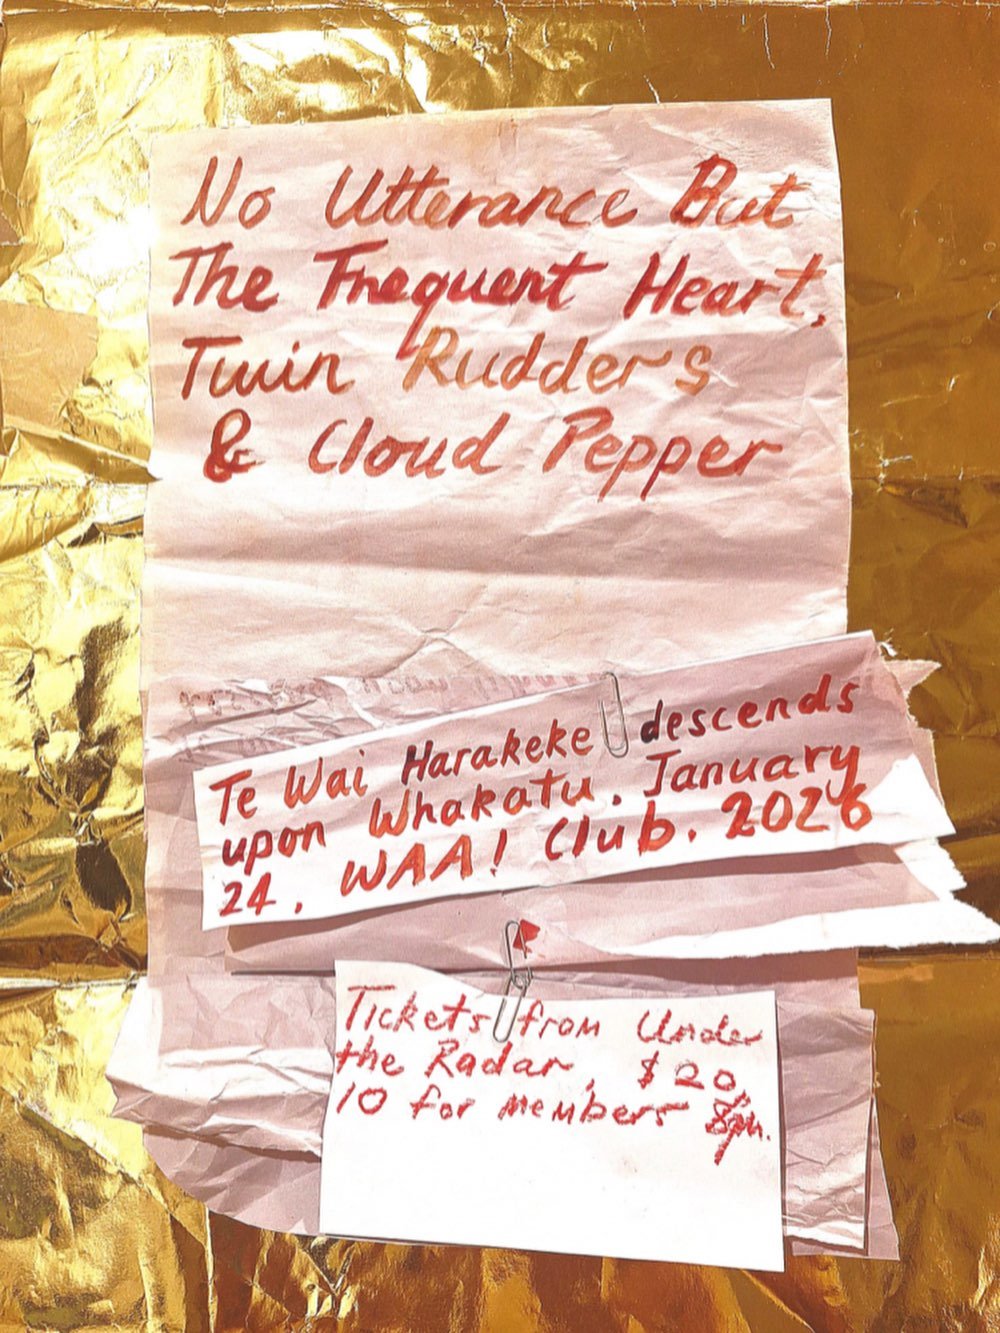 No Utterance But
The Frequent Heart,
Twin Rudders
& Cloud Pepper
Te Wai Harakeke descends
upon Whakatu. January
24. WAA! Club. 2026
Tickets from Under
the Radar, $20,
10 for members 8pm.